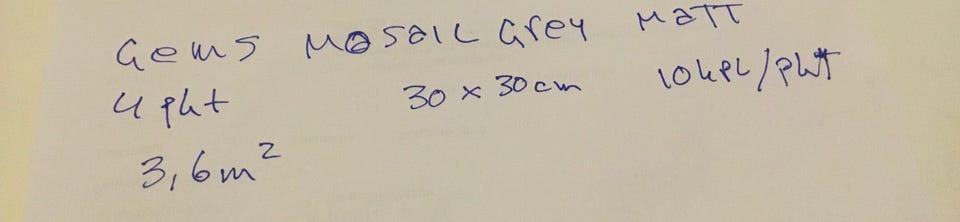 Gems Mosaic Grey Matt
4 pkt 30 x 30 cm 10 kpl/pkt
3,6 m²